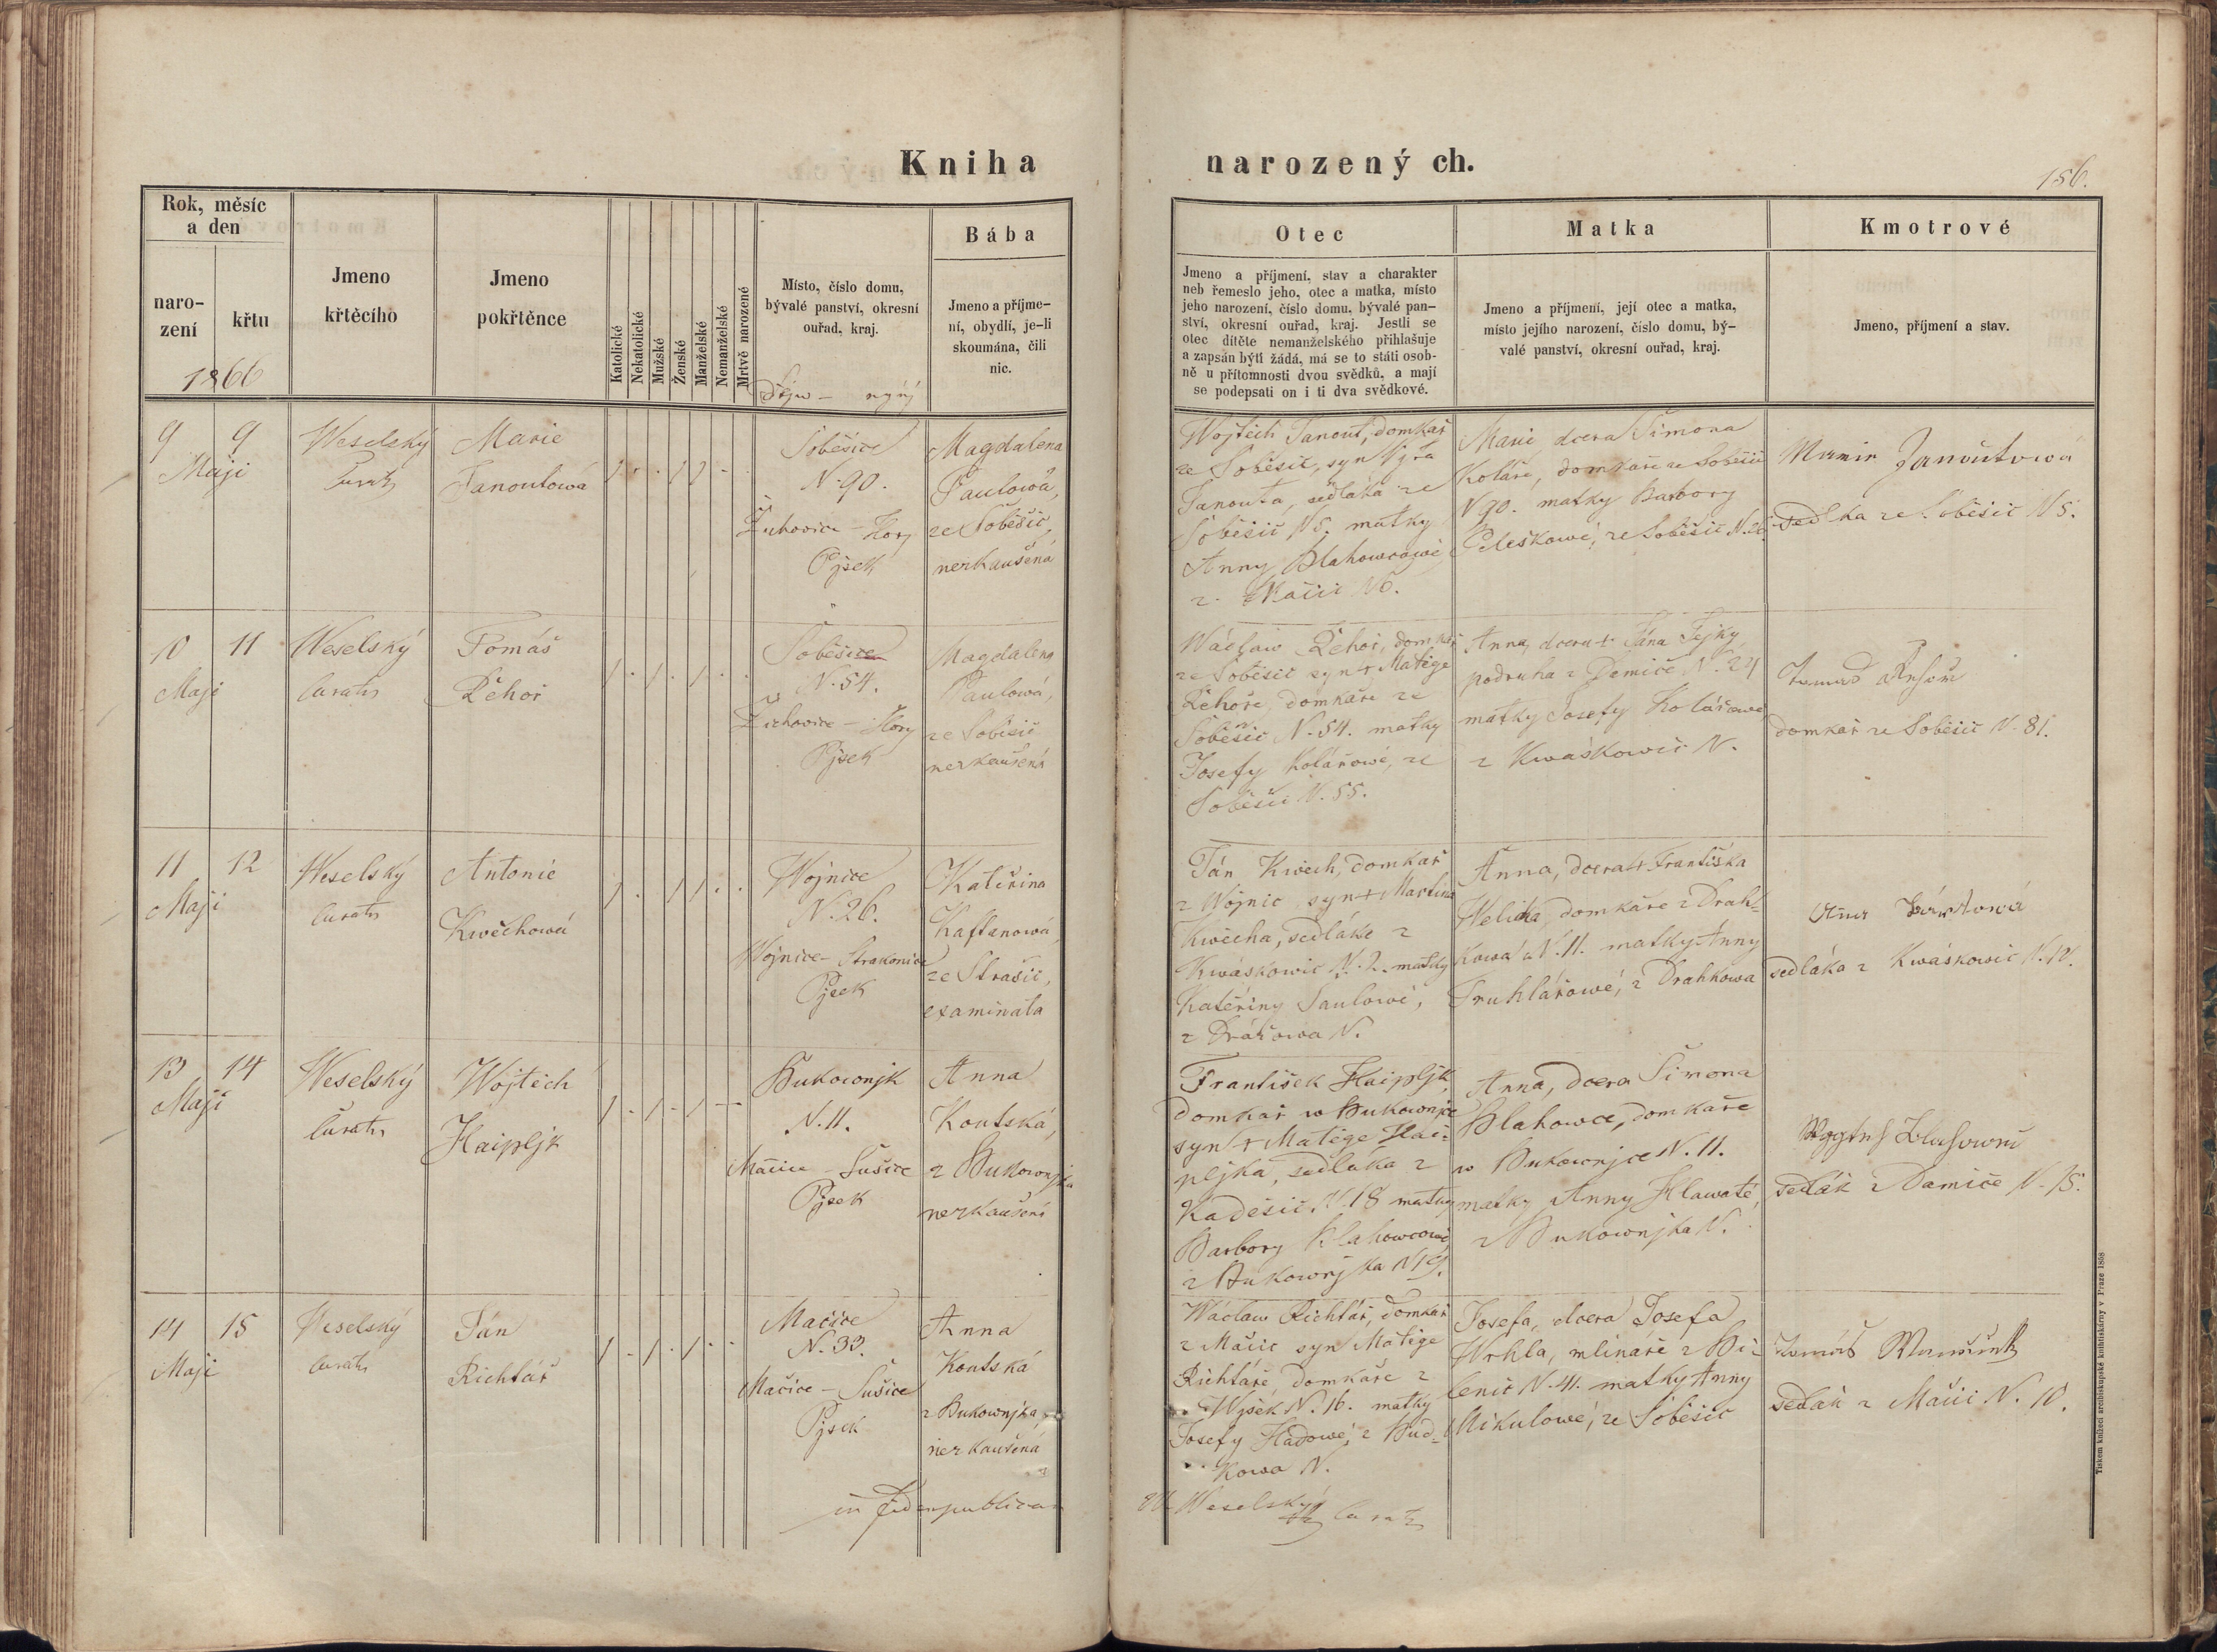 Kniha
narozených.
156.
Rok, měsíc
a den
naro-
zení
křtu
1866
Jmeno
křtěcího
Jmeno
pokřtěnce
Katolické
Nekatolické
Mužské
Ženské
Manželské
Nemanželské
Mrtvě narozené
Místo, číslo domu,
bývalé panství, okresní
ouřad, kraj.
Bába
Jmeno a příjme-
ní, obydlí, je-li
skoumána, čili
nic.
Otec
Jmeno a příjmení, stav a charakter
neb řemeslo jeho, otec a matka, místo
jeho narození, číslo domu, bývalé pan-
ství, okresní ouřad, kraj. Jestli se
otec dítěte nemanželského přihlašuje
a zapsán býti žádá, má se to státi osob-
ně u přítomnosti dvou svědků, a mají
se podepsati on i ti dva svědkové.
Matka
Jmeno a příjmení, její otec a matka,
místo jejího narození, číslo domu, bý-
valé panství, okresní ouřad, kraj.
Kmotrové
Jmeno, příjmení a stav.
9 9
Maji
Weselský
Marie
Janoutowá
Soběšice
N. 90.
Žichovice - Hory
Pjsek
Magdalena
Paulowá,
ze Soběšic,
nezkaušená
Wojtěch Janout, domkař
ze Soběšic, syn Wjta
Janouta, sedláka ze
Soběšic N5. matky
Anny Blahowcowé
z Mačic N6.
Marie dcera Šimona
Koláře, domkaře ze Soběšic
N90. matky Barbory
ze Soběšic
Janoutowá
sedlka ze Soběšic N5.
10 11
Maji
Weselský
Curatus
Tomáš
Řehoř
Soběšice
N. 54.
Žichovice - Hory
Pjsek
Magdalena
Paulowá,
ze Soběšic
nezkaušená
Wáclaw Řehoř, domkař
ze Soběšic syn + Matěge
Řehoře, domkaře ze
Soběšic N. 54. matky
Josefy Kolářowé, ze
Soběšic N. 55.
Anna, dcera + Jána Fejky
podruha z Damíče, N. 24
matky Josefy Kolářowé
z Kwáskowic N.
domkař ze Soběšic N. 81.
11 12
Maji
Weselský
Curatus
Antonie
Kwěchowá
Wojnice
N. 26.
Wojnice - Strakonice
Pjsek
Kateřina
Kaftanowá,
ze Strašic,
examinata
Ján Kwěch, domkař
z Wojnic, syn + Martina
Kwěcha, sedláka z
Kwáskowic N. 2. matky
Kateřiny Saulowé,
z Drážowa N.
Anna, dcera + Františka
Welicha, domkaře z Drah-
kowa N. 11. matky Anny
Truhlářowé, z Drahkowa
sedláka z Kwáskowic N. 12.
13 14
Maji
Weselský
Curatus
Wojtěch
Haipljk
Bukownjk
N. 11.
Mačice - Sušice
Pjsek
Anna
Koutská,
z Bukownjka
nezkaušená
František Haipljk
domkař w Bukownjce
syn + Matěge Hai-
pljka, sedláka z
Kadešic, N. 18 matky
Barbory Blahowcowé
z Bukownjka N 19.
Anna, dcera Šimona
Blahowce, domkaře
w Bukownjce N. 11.
matky Anny Hlawaté,
z Bukownjka N.
sedlák z Damíče N. 15.
14 15
Maji
Weselský
Curatus
Ján
Richtář
Mačice
N. 33.
Mačice - Sušice
Pjsek
Anna
Koutská
z Bukownjka,
nezkaušená
Wáclaw Richtář, domkař
z Mačic syn Matěge
Richtáře domkaře z
N. 16. matky
Josefy Hadowé, z Bud-
kowa N.
Josefa, dcera Josefa
Wrhla, mlináře z Bi-
lenic N. 41. matky Anny
Mikulowé, ze Soběšic
Tomáš
sedlák z Mačic N. 10.
in fidem publicam
Weselský
Tiskem knížecí arcibiskupské knihtiskárny v Praze 1858